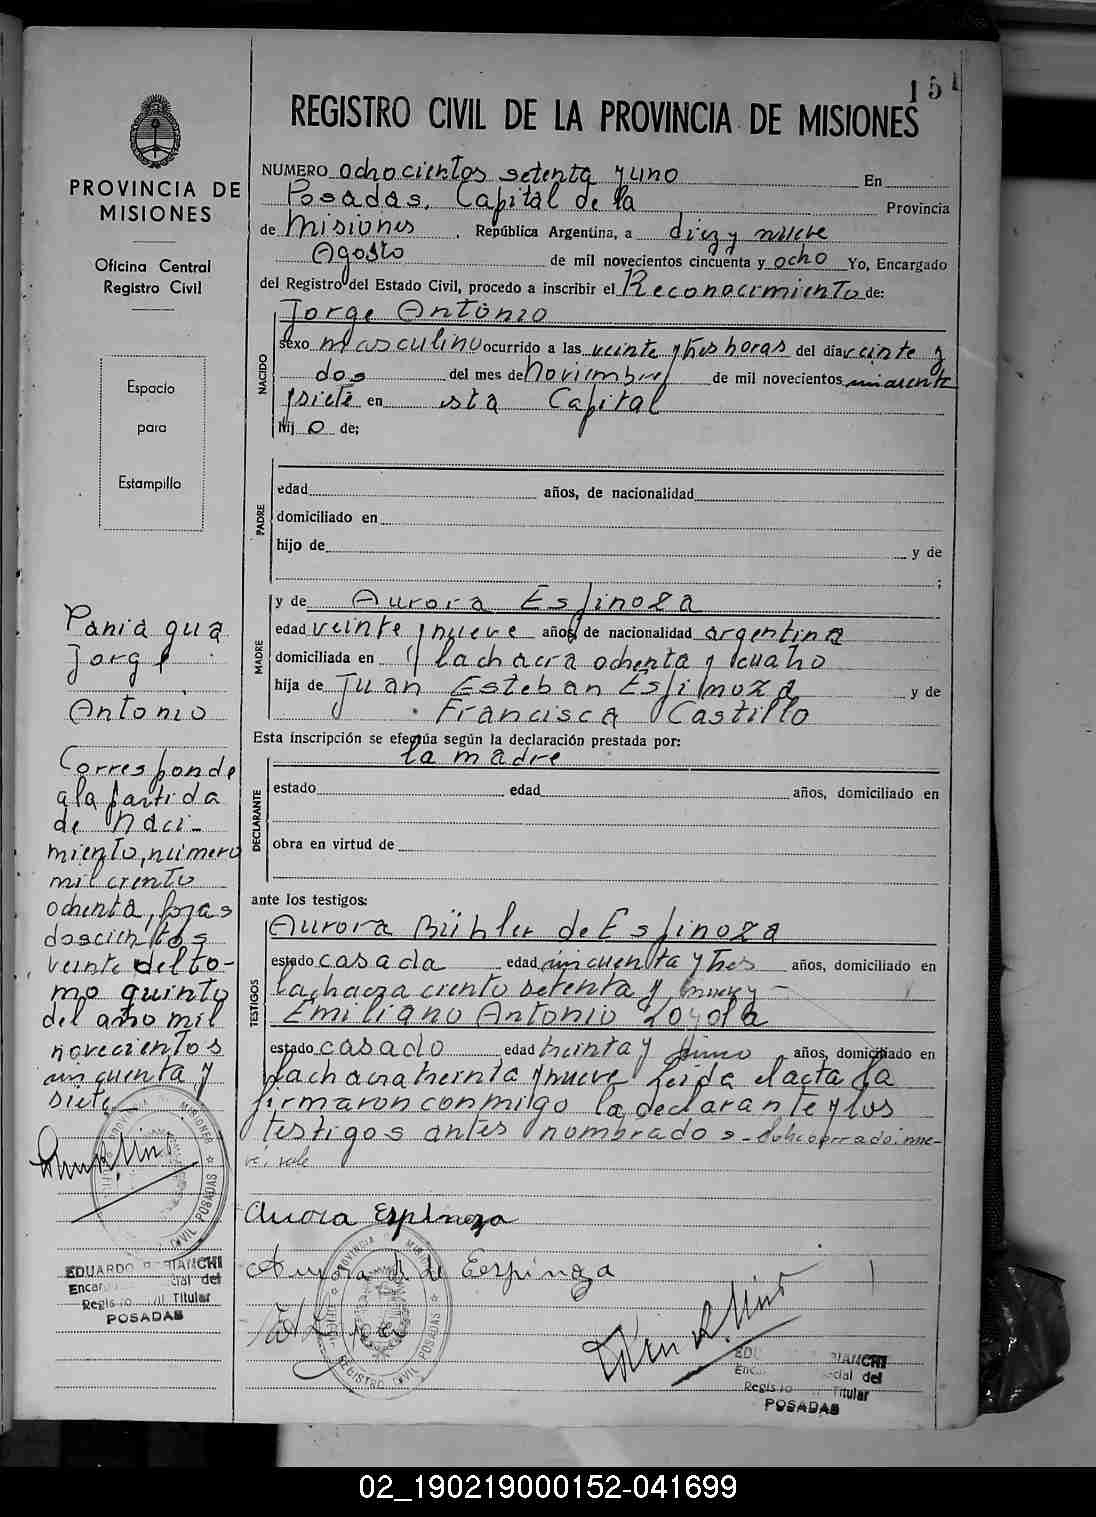 151
REGISTRO CIVIL DE LA PROVINCIA DE MISIONES
NUMERO ochocientos setenta y uno En
Posadas, Capital de la Provincia
de Misiones, República Argentina, a diez y nueve
Agosto de mil novecientos cincuenta y ocho Yo, Encargado
del Registro del Estado Civil, procedo a inscribir el Reconocimiento de:
Jorge Antonio
NACIDO
sexo masculino ocurrido a las veinte y tres horas del dia veinte y
dos del mes de Noviembre de mil novecientos cincuenta
y siete en esta Capital
hijo de;
PADRE
edad años, de nacionalidad
domiciliado en
hijo de y de
;
MADRE
y de Aurora Espinoza
edad veinte y nueve años, de nacionalidad argentina
domiciliada en la chacra ochenta y cuatro
hija de Juan Esteban Espinoza y de
Francisca Castillo
Esta inscripción se efectúa según la declaración prestada por:
la madre
DECLARANTE
estado edad años, domiciliado en
obra en virtud de
ante los testigos:
TESTIGOS
Aurora Bühler de Espinoza
estado casada edad cincuenta y tres años, domiciliado en
la chacra ciento setenta y nueve y
Emiliano Antonio Loyola
estado casado edad treinta y años, domiciliado en
la chacra treinta y nueve Leida el acta la
firmaron conmigo la declarante y los
testigos antes nombrados - Sobreborrado: nue-
ve, vale
Aurora Espinoza
Aurora B de Espinoza
PROVINCIA DE MISIONES
REGISTRO CIVIL POSADAS
EDU BIANCHI
Enc cial del
Regis Titular
POSADAS
PROVINCIA DE
MISIONES
Oficina Central
Registro Civil
Espacio
para
Estampilla
Paniagua
Jorge
Antonio
Corresponde
a la partida
de Naci-
miento, número
mil ciento
ochenta, fojas
doscientos
veinte del to-
mo quinto
del año mil
novecientos
cincuenta y
siete
MISIONES
CIVIL POSADAS
EDUARDO R. BIANCHI
Encar cial del
Regis Titular
POSADAS
02_190219000152-041699